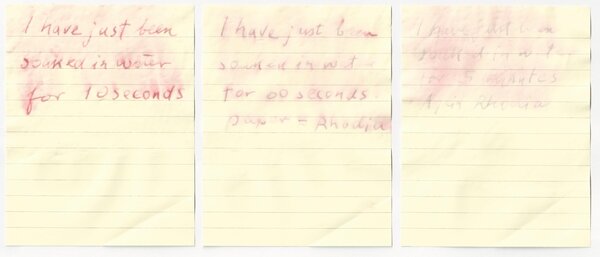 I have just been
soaked in water
for 10 seconds
I have just been
soaked in
for seconds
paper - Rhodia
I have just been
soaked in
for 5 minutes
Rhodia